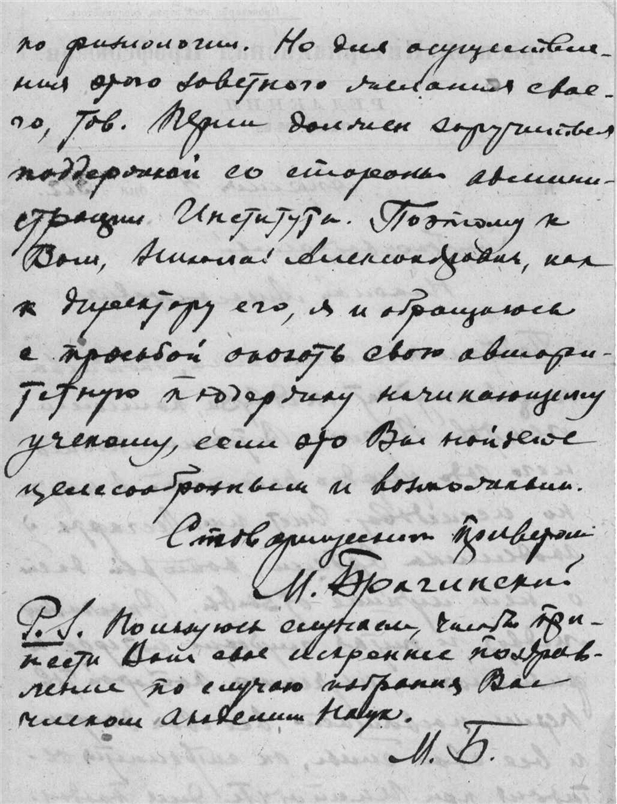 по физиологии. Но для осуществле-
ния этого заветного желания свое-
го, тов. должен заручиться
поддержкой со стороны админи-
страции Института. Поэтому к
Вам, Николай Александрович, как
к директору его, я и обращаюсь
с просьбой оказать свою автори-
тетную поддержку начинающему
ученому, если это Вы найдете
целесообразным и возможным.
С товарищеским приветом
М. Брагинский
P.S. Пользуюсь случаем, чтобы при-
нести Вам свое искреннее поздрав-
ление по случаю избрания Вас
членом Академии Наук.
М. Б.